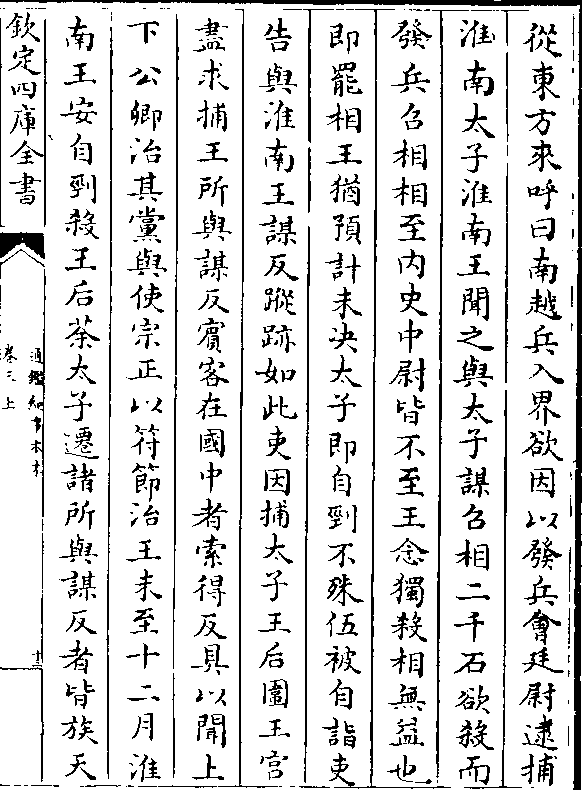 從東方來呼曰南越兵入界欲因以發兵會廷尉逮捕
淮南太子淮南王聞之與太子謀召相二千石欲殺而
發兵召相相至内史中尉皆不至王念獨殺相無益也
即罷相王猶預計未決太子即自剄不殊伍被自詣吏
告與淮南王謀反蹤跡如此吏因捕太子王后圍王宫
盡求捕王所與謀反賓客在國中者索得反具以聞上
下公卿治其黨與使宗正以符節治王未至十二月淮
南王安自剄殺王后荼太子遷諸所與謀反者皆族天
欽定四庫全書
通鑑紀事本末
卷三上